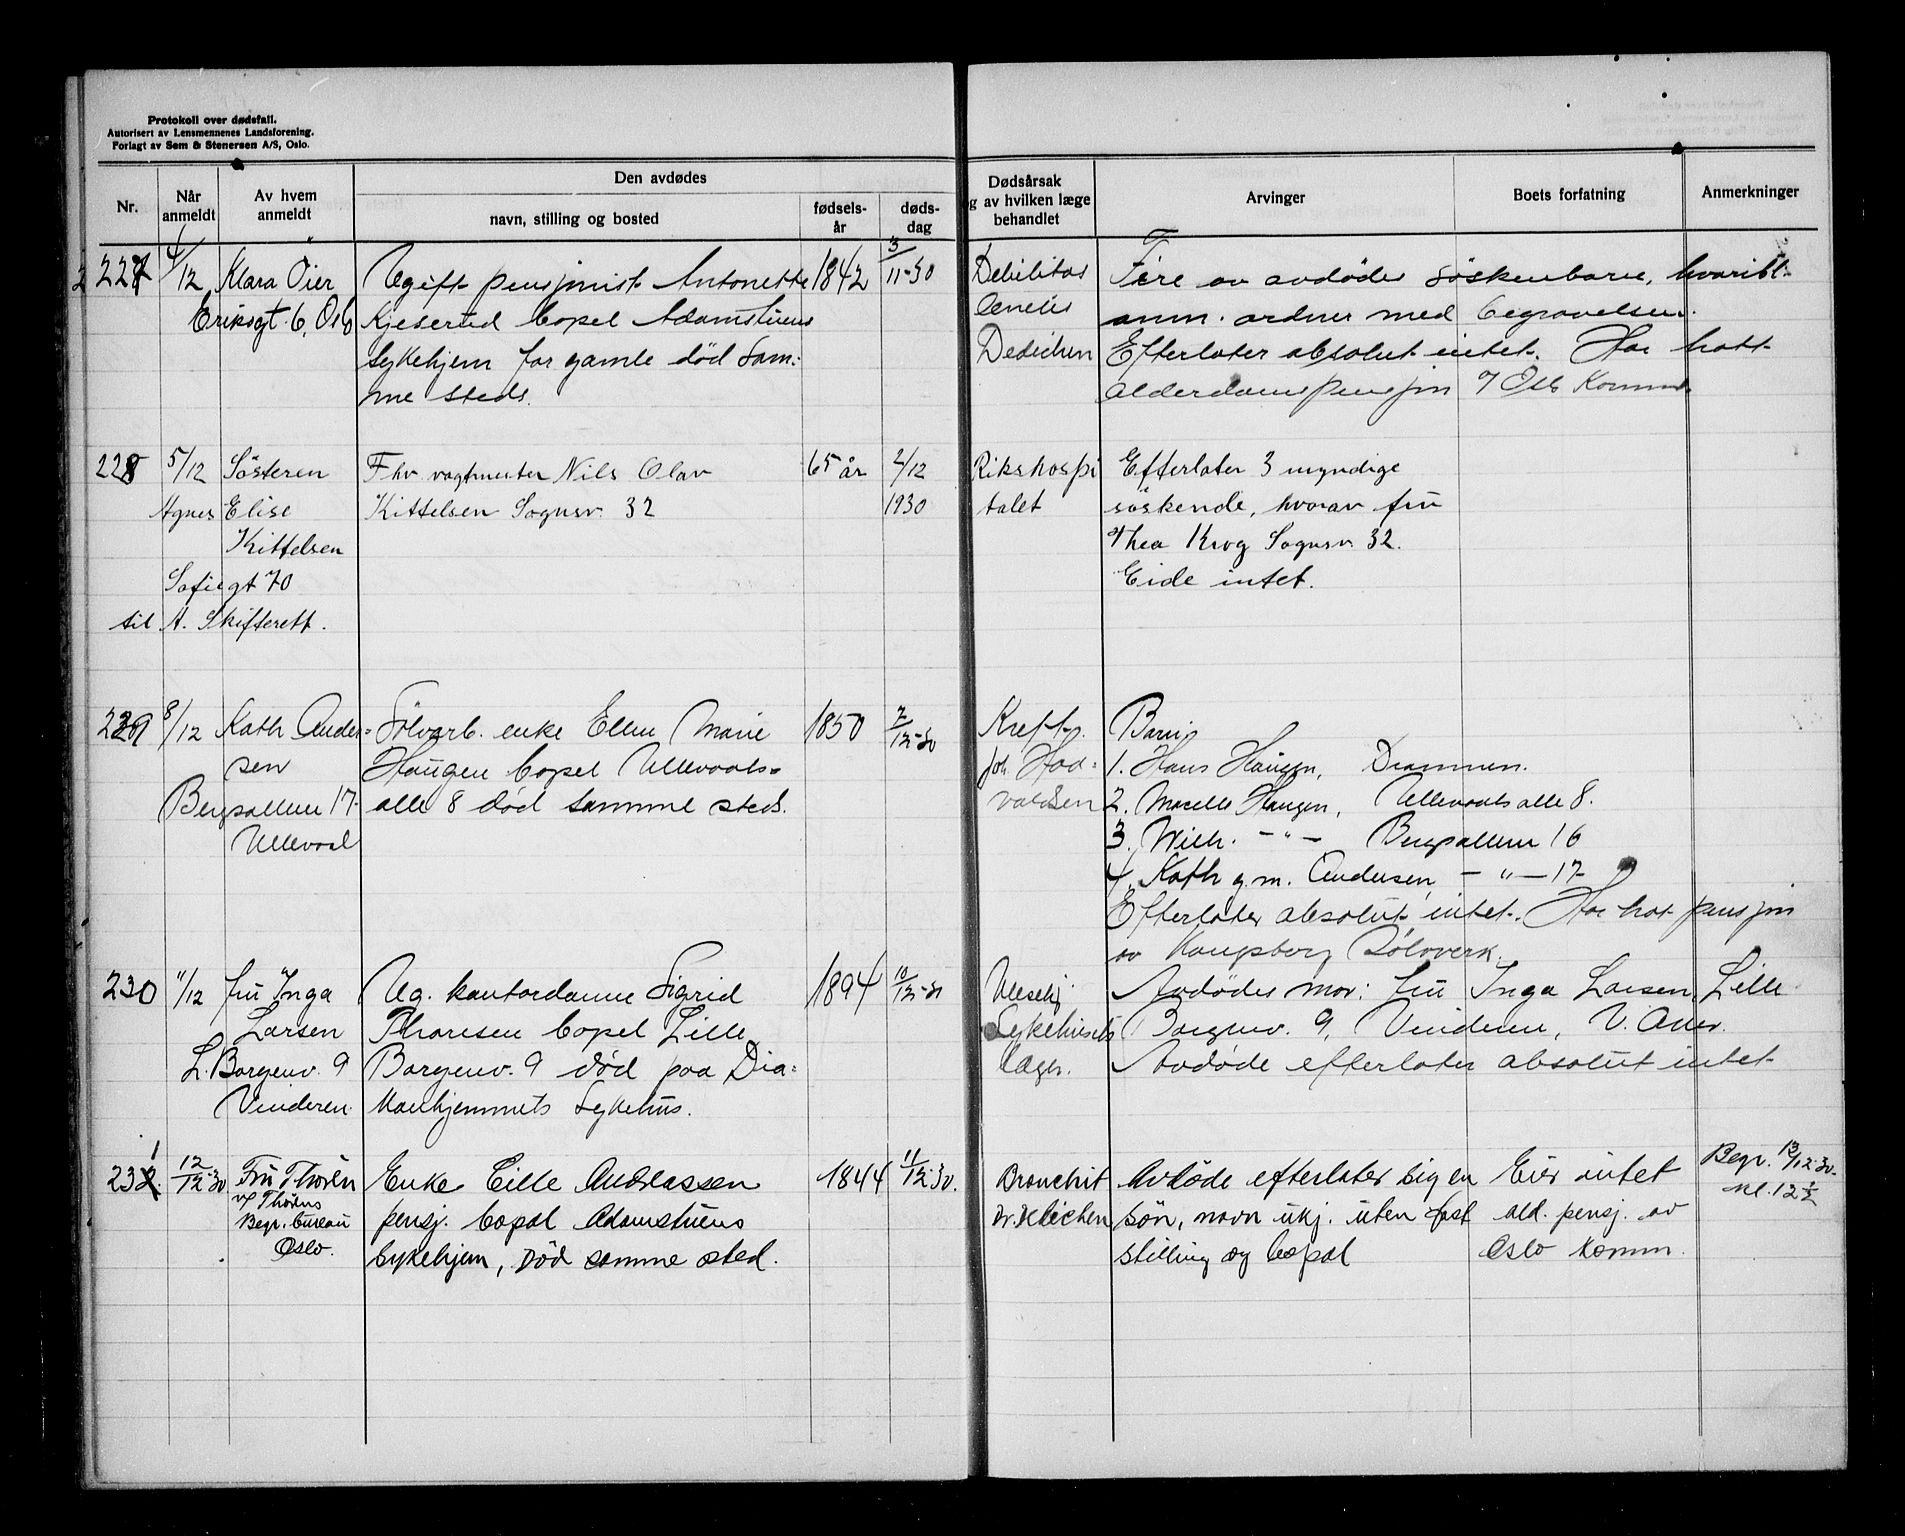 Protokoll over dødsfall.
Autorisert av Lensmennenes Landsforening.
Forlagt av Sem & Stenersen A/S, Oslo.
Nr.
Når anmeldt
Av hvem anmeldt
Den avdødes
navn, stilling og bosted
fødsels-år
døds-dag
Dødsårsak
og av hvilken læge
behandlet
Arvinger
Boets forfatning
Anmerkninger
227 4/12 Klara Öier
Eriksgt. 6, Oslo
Ugift pensjonist Antonette
Kjeserud bopel Adamstuens
sykehjem for gamle död sam-
me steds.
1842
3/11-30
Debilitas
senilis
Dedichen
Fire av avdödes söskenbarn, hvoribl.
anm. ordner med begravelsen.
Efterlater absolut intet. Har hatt
alderdomspensjon Oslo Komm.
228 5/12 Sösteren
Agnes Elise
Kittelsen
Sofiegt 70
til A. Skifterett.
Fhv vagtmester Nils Olav
Kittelsen Sognsv. 32
65 år
2/12
1930
Rikshospi
talet
Efterlater 3 myndige
söskende, hvorav fru
Thea Krog Sognsv. 32.
Eide intet.
229 8/12 Kath Ander-
sen
Bergsalleen 17
Ullevaal
Sölvarb. enke Ellen Marie
Haugen bopel Ullevaals-
alle 8 död samme steds.
1850
7/12-30
Kreft.
Joh. Haa-
valdsen
Barn
1. Hans Haugen, Drammen.
2. Marelle Haugen, Ullevaals alle 8.
3. Wilh. — " — Bergsalleen 16
4. Kath g.m. Andersen — " — 17
Efterlater absolut intet. Har hat pensjon
av Kongsberg Sölvverk.
230 11/12 fru Inga
Larsen
L. Borgenv. 9
Vinderen.
Ug. kontordame Sigrid
Thoresen bopel Lille
Borgenv. 9 död paa Dia-
konhjemmets Sykehus.
1894
10/12-30
Sykehusets
læger.
Avdödes mor: fru Inga Larsen, Lille
Borgenv. 9, Vinderen, V. Aker.
Avdöde efterlater absolut intet
231 12/12-30 Fru Thorén
v/ Thoréns
Begr. bureau
Oslo.
Enke Lille Andreassen
pensj. bopal Adamstuens
sykehjem, död samme sted.
1844
11/12-30.
Bronchit
Dr. Dedichen
Avdöde efterlater sig en
sön, navn ukj. uten fast
stilling og bopal
Eier intet
ald. pensj. av
Oslo komm.
Begr. 13/12-30.
kl. 12 1/2